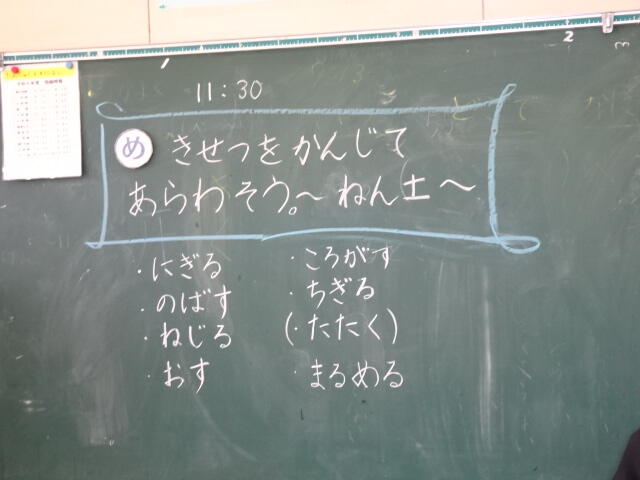 11:30
め きせつをかんじて
あらわそう。～ねん土～
・にぎる
・のばす
・ねじる
・おす
・ころがす
・ちぎる
(・たたく)
・まるめる
2
3